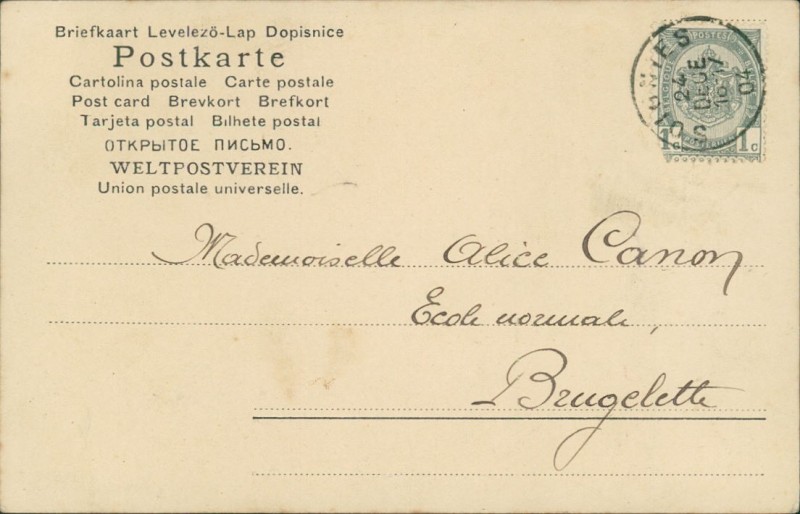 Briefkaart Levelezö-Lap Dopisnice
Postkarte
Cartolina postale Carte postale
Post card Brevkort Brefkort
Tarjeta postal Bilhete postal
ОТКРЫТОЕ ПИСЬМО.
WELTPOSTVEREIN
Union postale universelle.
SOIGNIES
24
DECE
04
1c 1c
Mademoiselle Alice Canon
Ecole normale,
Brugelette